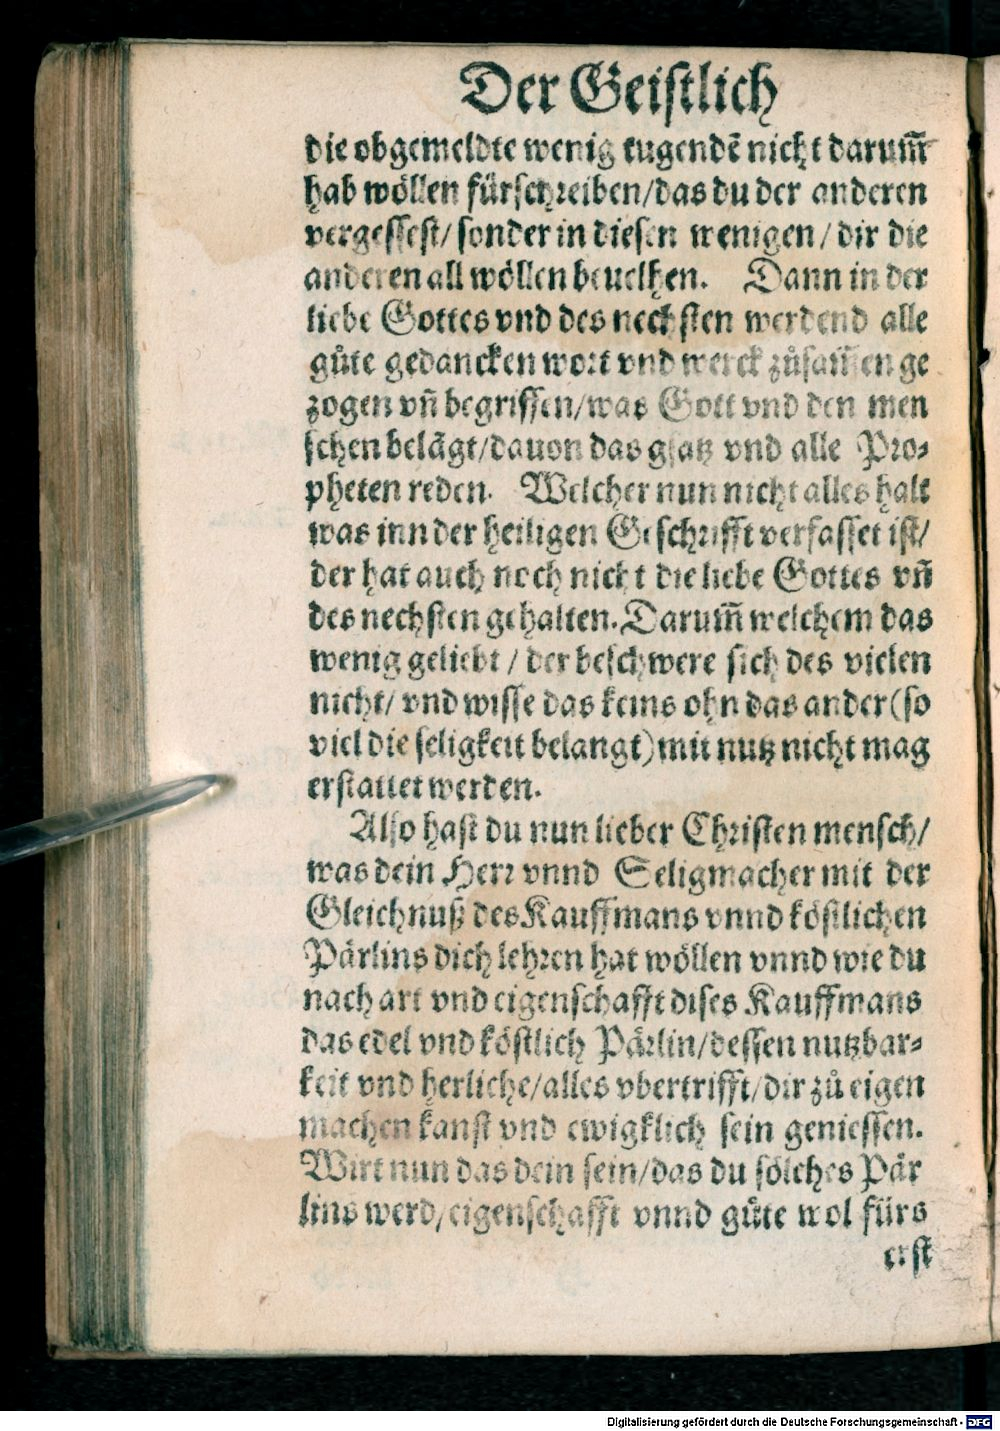 Der Geistlich
die obgemeldte wenig tugendẽ nicht darum̃
hab wöllen fürschreiben/das du der anderen
vergessest/ sonder in diesen wenigen/ dir die
anderen all wöllen beuelhen. Dann in der
liebe Gottes vnd des nechsten werdend alle
gůte gedancken wort vnd werck zůsam̃en ge
zogen vñ begriffen/was Gott vnd den men
schen belãgt/dauon das gsatz vnd alle Pro-
pheten reden. Welcher nun nicht alles halt
was inn der heiligen Geschrifft verfasset ist/
der hat auch noch nicht die liebe Gottes vñ
des nechsten gehalten. Darum̃ welchem das
wenig geliebt / der beschwere sich des vielen
nicht/ vnd wisse das keins ohn das ander(so
viel die seligkeit belangt)mit nutz nicht mag
erstattet werden.
Also hast du nun lieber Christen mensch/
was dein Herr vnnd Seligmacher mit der
Gleichnuß des Kauffmans vnnd köstlichen
Pärlins dich lehren hat wöllen vnnd wie du
nach art vnd eigenschafft dises Kauffmans
das edel vnd köstlich Pärlin/dessen nutzbar-
keit vnd herliche/alles vbertrifft/dir zů eigen
machen kanst vnd ewigklich sein geniessen.
Wirt nun das dein sein/das du sölches Pär
lins werd/eigenschafft vnnd gůte wol fürs
erst
Digitalisierung gefördert durch die Deutsche Forschungsgemeinschaft - DFG